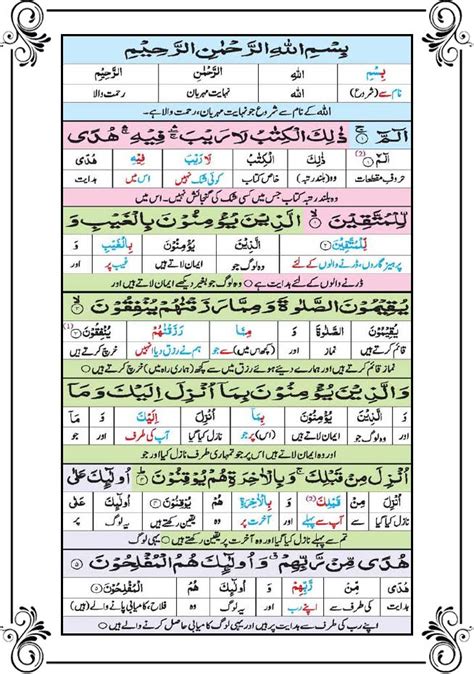 بِسْمِ اللهِ الرَّحْمٰنِ الرَّحِيْمِ
بِسْمِ اللهِ الرَّحْمٰنِ الرَّحِيْمِ
نام سے (شروع) اللہ نہایت مہربان رحمت والا
اللہ کے نام سے شروع جو نہایت مہربان، رحمت والا ہے۔
الٓمّٓ ۚ ذٰلِكَ الْكِتٰبُ لَا رَيْبَ ۛ فِيْهِ ۛ هُدًى
الٓمّٓ ذٰلِكَ الْكِتٰبُ لَا رَيْبَ فِيْهِ هُدًى
حروفِ مقطعات وہ (بلند رتبہ) خاص کتاب کوئی شک نہیں اس میں ہدایت
وہ بلند رتبہ کتاب جس میں کسی شک کی گنجائش نہیں۔ اس میں
لِّلْمُتَّقِيْنَ ۙ الَّذِيْنَ يُؤْمِنُوْنَ بِالْغَيْبِ وَ
لِّلْمُتَّقِيْنَ الَّذِيْنَ يُؤْمِنُوْنَ بِالْغَيْبِ وَ
پرہیزگاروں، ڈرنے والوں کے لئے وہ لوگ جو ایمان لاتے ہیں غیب پر اور
ڈرنے والوں کے لئے ہدایت ہے ○ وہ لوگ جو بغیر دیکھے ایمان لاتے ہیں اور
يُقِيْمُوْنَ الصَّلٰوةَ وَمِمَّا رَزَقْنٰهُمْ يُنْفِقُوْنَ ۙ
يُقِيْمُوْنَ الصَّلٰوةَ وَ مِمَّا رَزَقْنٰهُمْ يُنْفِقُوْنَ
قائم کرتے ہیں نماز اور (کچھ اس میں) سے جو ہم نے رزق دیا انہیں خرچ کرتے ہیں
نماز قائم کرتے ہیں اور ہمارے دیئے ہوئے رزق میں سے کچھ (ہماری راہ میں) خرچ کرتے ہیں ○
وَالَّذِيْنَ يُؤْمِنُوْنَ بِمَاۤ اُنْزِلَ اِلَيْكَ وَمَاۤ
وَ الَّذِيْنَ يُؤْمِنُوْنَ بِمَاۤ اُنْزِلَ اِلَيْكَ وَ مَاۤ
اور وہ لوگ جو ایمان لاتے ہیں (اس) پر جو نازل کیا گیا آپ کی طرف اور جو
اور وہ ایمان لاتے ہیں اس پر جو تمہاری طرف نازل کیا گیا اور جو
اُنْزِلَ مِنْ قَبْلِكَ ۚ وَبِالْاٰخِرَةِ هُمْ يُوْقِنُوْنَ ؕ اُولٰٓئِكَ عَلٰى
اُنْزِلَ مِنْ قَبْلِكَ وَ بِالْاٰخِرَةِ هُمْ يُوْقِنُوْنَ اُولٰٓئِكَ عَلٰى
نازل کیا گیا آپ سے پہلے اور آخرت پر وہ یقین رکھتے ہیں یہ لوگ پر
تم سے پہلے نازل کیا گیا اور وہ آخرت پر یقین رکھتے ہیں ○ یہی لوگ
هُدًى مِّنْ رَّبِّهِمْ ۗ وَ اُولٰٓئِكَ هُمُ الْمُفْلِحُوْنَ
هُدًى مِّنْ رَّبِّهِمْ وَ اُولٰٓئِكَ هُمُ الْمُفْلِحُوْنَ
ہدایت کی طرف سے اپنے رب اور یہ لوگ وہ فلاح، کامیابی پانے والے ہیں
اپنے رب کی طرف سے ہدایت پر ہیں اور یہی لوگ کامیابی حاصل کرنے والے ہیں ○